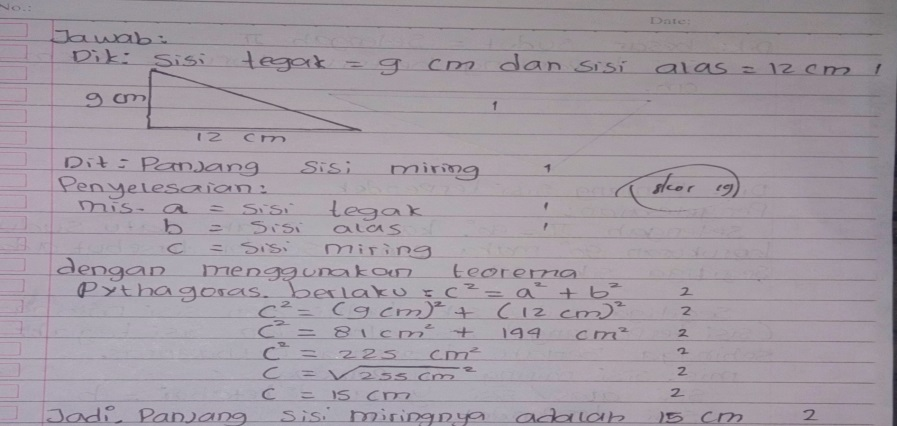 No.:
Date:
Jawab:
Dik: Sisi tegak = 9 cm dan sisi alas = 12 cm 1
9 cm
1
12 cm
Dit: Panjang sisi miring 1
Penyelesaian: (skor 19)
mis. a = sisi tegak 1
b = sisi alas 1
c = sisi miring
dengan menggunakan teorema
Pythagoras. berlaku : c² = a² + b² 2
c² = (9 cm)² + (12 cm)² 2
c² = 81 cm² + 144 cm² 2
c² = 225 cm² 2
c = √255 cm² 2
c = 15 cm 2
Jadi, Panjang sisi miringnya adalah 15 cm 2